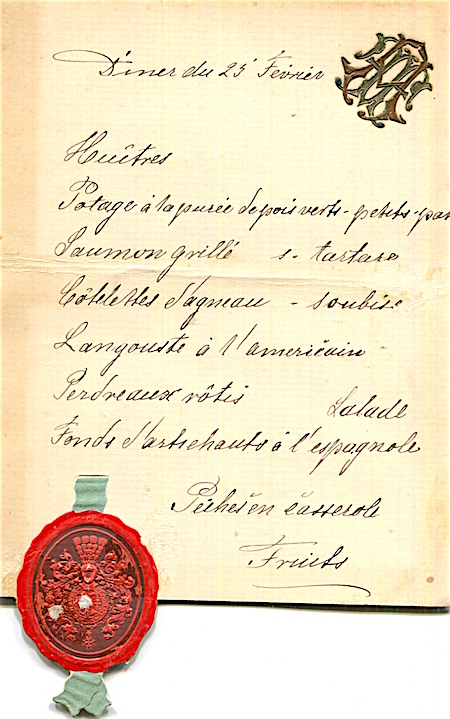 Dîner du 25 Février
Huîtres
Potage à la purée de pois verts - petits - pat
Saumon grillé s. tartare
Côtelettes d'agneau - soubise
Langouste à l'américain
Perdreaux rôtis
Salade
Fonds d'artichauts à l'espagnole
Pêches en casserole
Fruits